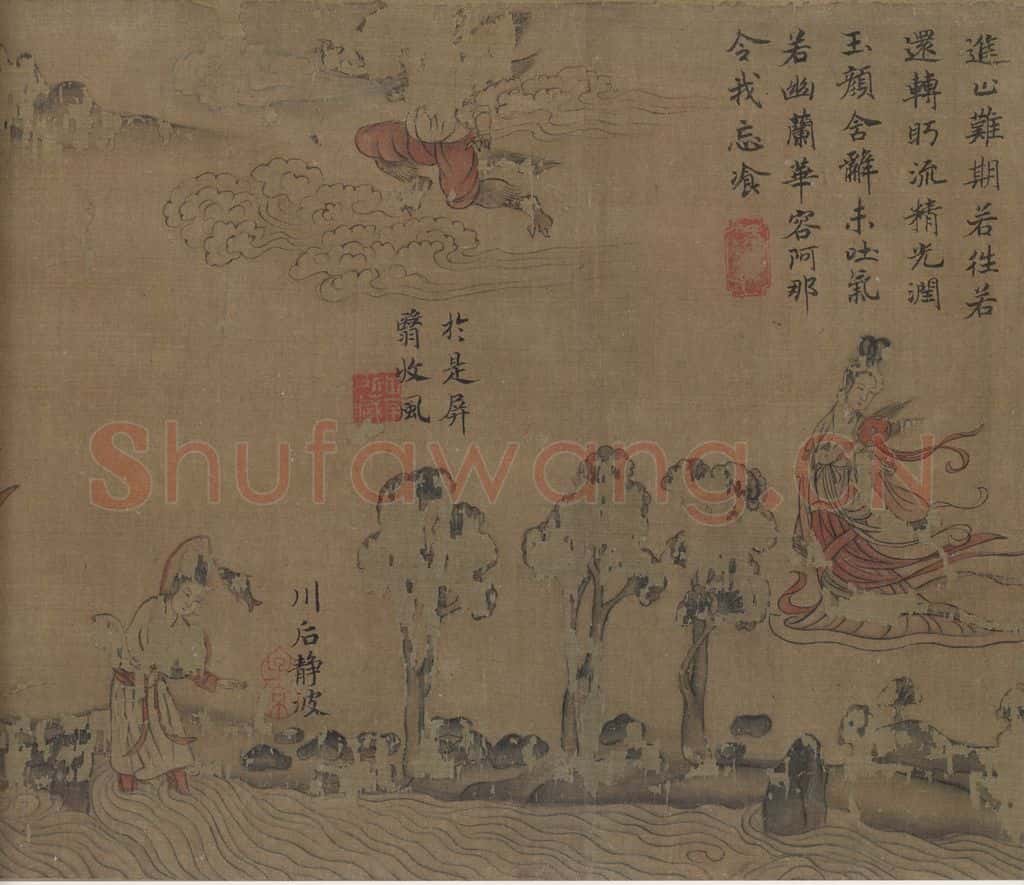 進止難期若往若
還轉眄流精光潤
玉顏含辭未吐氣
若幽蘭華容阿那
令我忘飡
於是屏
翳收風
川后静波
Shufawang.CN